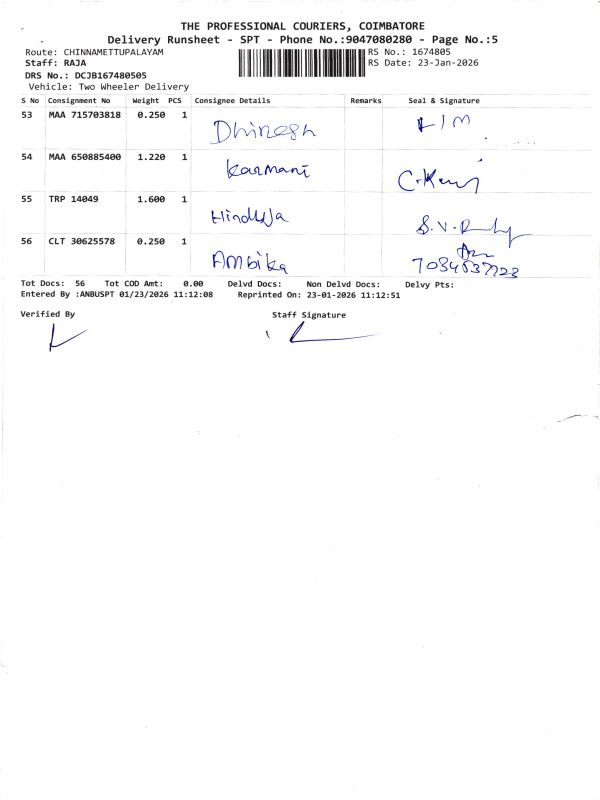 THE PROFESSIONAL COURIERS, COIMBATORE
Delivery Runsheet - SPT - Phone No.:9047080280 - Page No.:5
Route: CHINNAMETTUPALAYAM RS No.: 1674805
Staff: RAJA RS Date: 23-Jan-2026
DRS No.: DCJB167480505
Vehicle: Two Wheeler Delivery
S No Consignment No Weight PCS Consignee Details Remarks Seal & Signature
53 MAA 715703818 0.250 1 Dhinesh
54 MAA 650885400 1.220 1 Karmani
55 TRP 14049 1.600 1 Hinduja
56 CLT 30625578 0.250 1 AMbika
Tot Docs: 56 Tot COD Amt: 0.00 Delvd Docs: Non Delvd Docs: Delvy Pts:
Entered By :ANBUSPT 01/23/2026 11:12:08 Reprinted On: 23-01-2026 11:12:51
Verified By Staff Signature